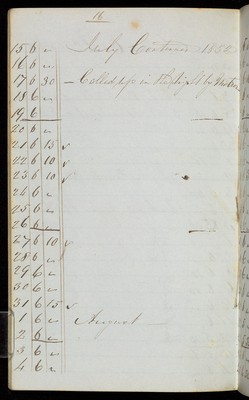 16
July Continued 1852
15 6 "
16 6 "
17 6 30 – Called up in the night for
18 6 "
19 6
20 6 "
21 6 15
22 6 10
23 6 10
24 6 "
25 6 "
26 6 "
27 6 10
28 6 "
29 6 "
30 6 "
31 6 15
1 6 " August
2 6 "
3 6 "
4 6 "